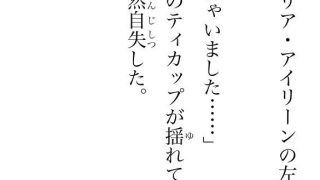 リア・アイリーンの左
ゃいました……」
のティカップが揺れて
然自失した。